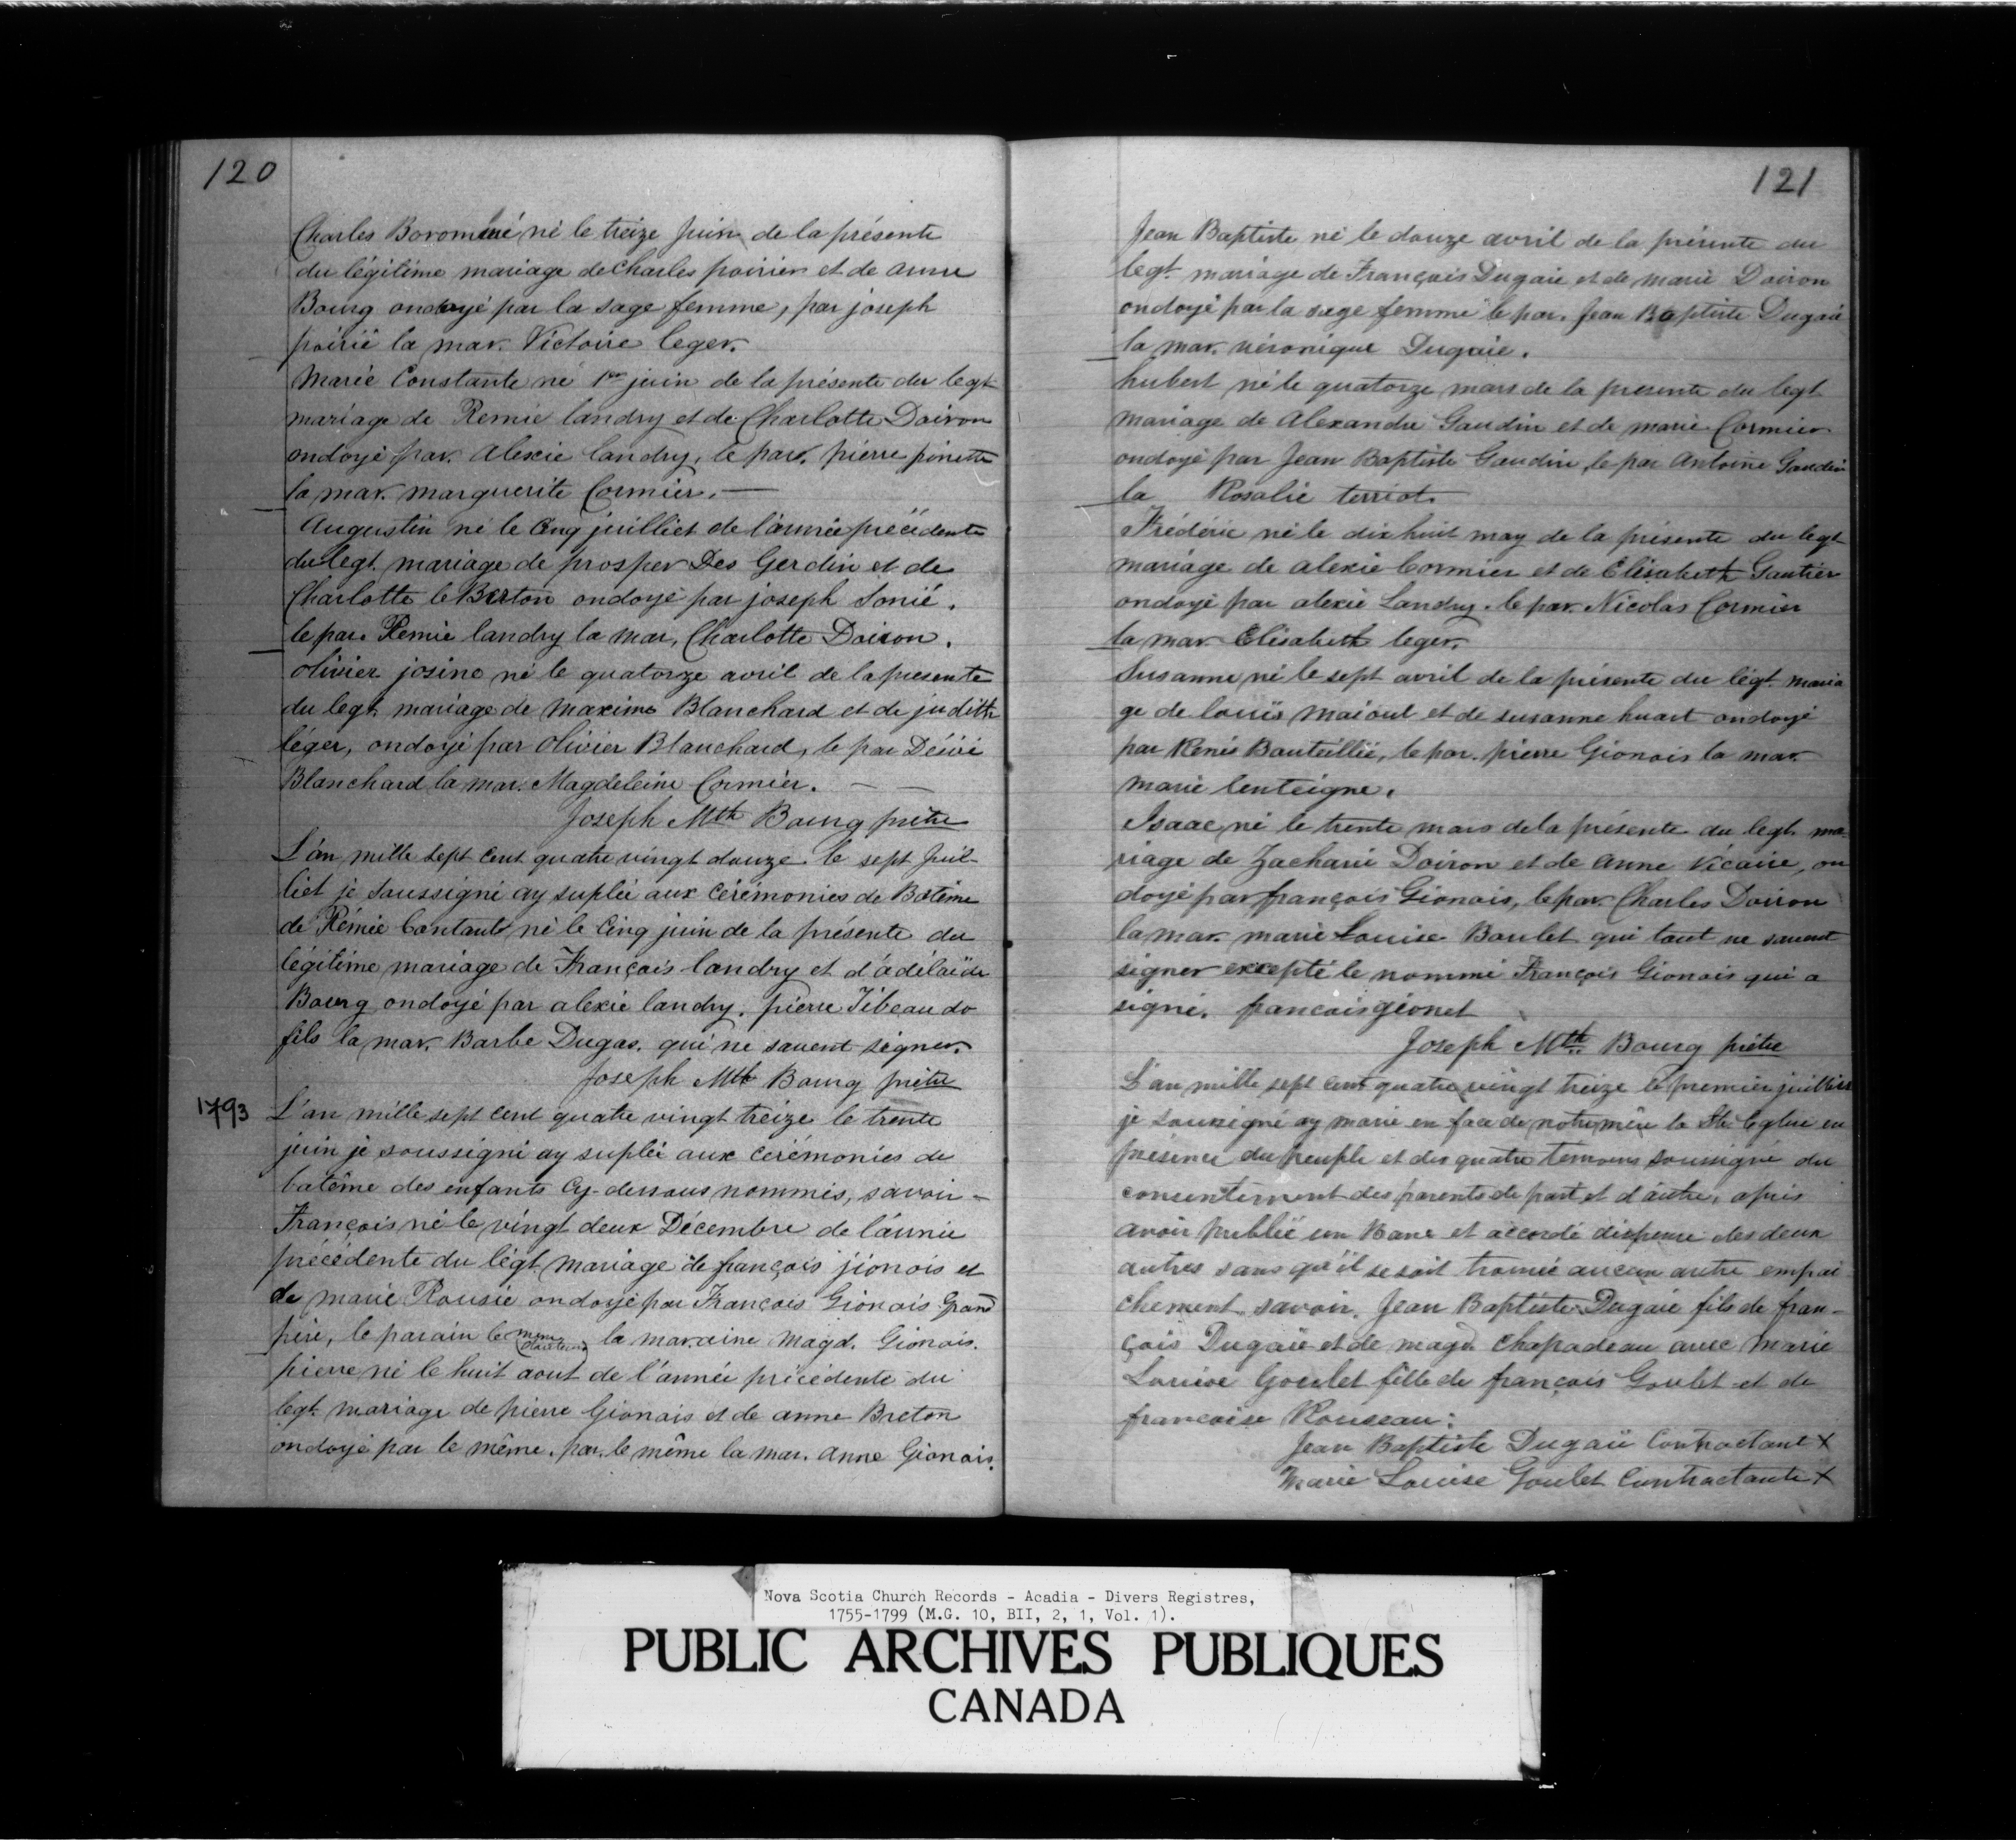 120
Charles Boromé né le treize Juin de la présente
du légitime mariage de Charles poirier et de anne
Bourg ondoyé par la sage femme, par joseph
poirié la mar. Victoire leger.
Marie Constante né 1er juin de la présente du legt
mariage de Remie landry et de Charlotte Doiron
ondoyé par. Alexie landry, le par. pierre pinette
la mar. marguerite Cormier. —
Augustin né le Cinq juilliet de l'année précédente
du legt. mariage de prosper Des Gerdin et de
Charlotte le Breton ondoyé par joseph Sonié.
le par. Remie landry la mar. Charlotte Doiron.
olivier josine né le quatorze avril de la presente
du legt. mariage de maxime Blanchard et de judith
léger, ondoyé par Olivier Blanchard, le par Désiré
Blanchard la mar. Magdeleine Cormier. — —
Joseph Mth Bourg prêtre
L'an mille sept cent quatre vingt douze le sept Juil-
liet je Soussigné ay suplée aux cérémonies de Batême
de Rémie Contant né le Cinq juin de la présente du
légitime mariage de François landry et d'adélaïde
Bourg ondoyé par alexie landry. pierre Tibeaudo
fils la mar. Barbe Dugas. qui ne savent signer.
Joseph Mth Bourg prêtre
1793
L'an mille sept cent quatre vingt treize le trente
juin je soussigné ay suplée aux cérémonies de
batême des enfants Cy-dessous nommés, savoir -
François né le vingt deux Décembre de l'année
précédente du légt mariage de françois jionois et
de marie Rousie ondoyé par François Gionois Grand
père, le parain le même la maraine Magd. Gionois.
pierre né le huit aout de l'année précédente du
legt. mariage de pierre Gionois et de anne Breton
ondoyé par le même. par. le même la mar. anne Gionois.
121
Jean Baptiste né le douze avril de la présente du
legt. mariage de François Dugaie et de marie Doiron
ondoyé par la sage femme le par. Jean Baptiste Dugaie
la mar. véronique Dugaie.
hubert né le quatorze mars de la presente du legt
mariage de Alexandre Gaudin et de marie Cormier
ondoyé par Jean Baptiste Gaudin, le par Antoine Gaudin
la Rosalie terriot.
Frédéric né le dix huit may de la présente du legt
mariage de alexie Cormier et de Elisabeth Gautier
ondoyé par alexie Landry. le par. Nicolas Cormier
la mar. Elisabeth leger.
Susanne né le sept avril de la présente du légt. maria
ge de louis maioul et de susanne huart ondoyé
par Renés Bouteillié, le par. pierre Gionois la mar.
marie lenteigne.
Isaac né le trente mars de la présente du legt. ma
riage de Zacharie Doiron et de Anne Vicaire, on
doyé par françois Gionois, le par. Charles Doiron
la mar. marie Louise Boulet qui tout ne savent
signer excepté le nommé François Gionois qui a
signé. francois gionet
Joseph Mth Bourg prêtre
L'an mille sept cent quatre vingt treize le premier juilliet
je soussigné ay marie en face de notre mère la Ste Eglise en
présence du peuple et des quatre temoins soussigné du
consentement des parents de part et d'autre, apris
avoir publié un Banc et accordé dispense des deux
autres sans qu'il se soit trouvée aucun autre empai
chement. savoir. Jean Baptiste Dugaie fils de fran-
çois Dugaie et de magd. chapadeau avec marie
Louise Goulet fille de françois Goulet et de
francoise Rousseau.
Jean Baptiste Dugaie Contractant X
Marie Louise Goulet Contractante X
Nova Scotia Church Records - Acadia - Divers Registres,
1755-1799 (M.G. 10, BII, 2, 1, Vol. 1).
PUBLIC ARCHIVES PUBLIQUES
CANADA